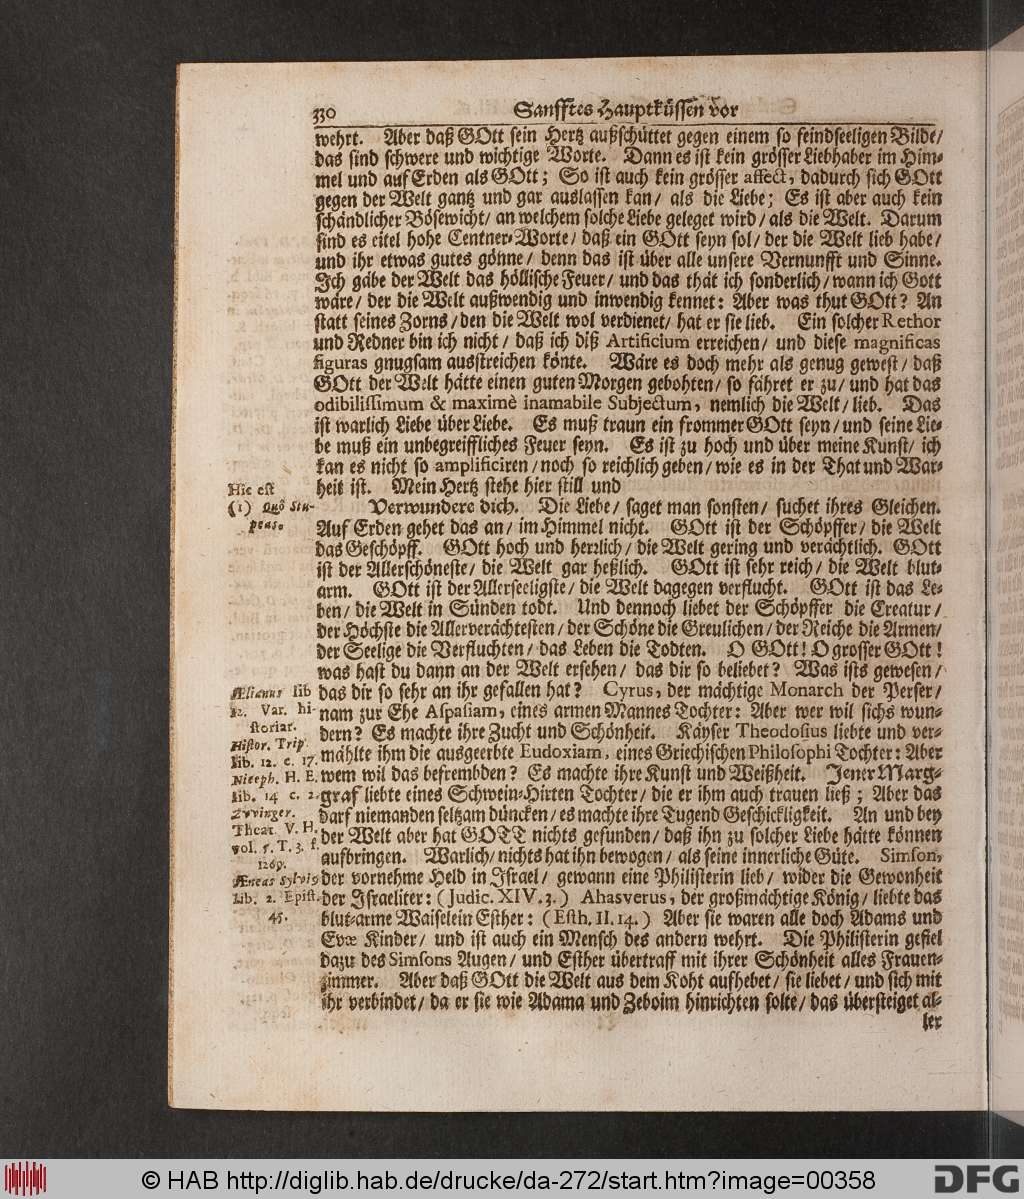 330 Sanfftes Hauptküssen vor
wehrt. Aber daß GOtt sein Hertz außschüttet gegen einem so feindseeligen Bilde/
das sind schwere und wichtige Worte. Dann es ist kein grösser Liebhaber im Him-
mel und auf Erden als GOtt; So ist auch kein grösser affect, dadurch sich GOtt
gegen der Welt gantz und gar auslassen kan/ als die Liebe; Es ist aber auch kein
schändlicher Bösewicht/ an welchem solche Liebe geleget wird/ als die Welt. Darum
sind es eitel hohe Centner-Worte/ daß ein GOtt seyn sol/ der die Welt lieb habe/
und ihr etwas gutes gönne/ denn das ist über alle unsere Vernunfft und Sinne.
Ich gäbe der Welt das höllische Feuer/ und das thät ich sonderlich/ wann ich Gott
wäre/ der die Welt außwendig und inwendig kennet: Aber was thut GOtt? An
statt seines Zorns/ den die Welt wol verdienet/ hat er sie lieb. Ein solcher Rethor
und Redner bin ich nicht/ daß ich diß Artificium erreichen/ und diese magnificas
figuras gnugsam ausstreichen könte. Wäre es doch mehr als genug gewest/ daß
GOtt der Welt hätte einen guten Morgen gebohten/ so fähret er zu/ und hat das
odibilissimum & maximè inamabile Subjectum, nemlich die Welt/ lieb. Das
ist warlich Liebe über Liebe. Es muß traun ein frommer GOtt seyn/ und seine Lie-
be muß ein unbegreiffliches Feuer seyn. Es ist zu hoch und über meine Kunst/ ich
kan es nicht so amplificiren/ noch so reichlich geben/ wie es in der That und War-
heit ist. Mein Hertz stehe hier still und
Hic est
(1) Quô Stu-
peas.
Verwundere dich. Die Liebe/ saget man sonsten/ suchet ihres Gleichen.
Auf Erden gehet das an/ im Himmel nicht. GOtt ist der Schöpffer/ die Welt
das Geschöpff. GOtt hoch und herrlich/ die Welt gering und verächtlich. GOtt
ist der Allerschöneste/ die Welt gar heßlich. GOtt ist sehr reich/ die Welt blut-
arm. GOtt ist der Allerseeligste/ die Welt dagegen verflucht. GOtt ist das Le-
ben/ die Welt in Sünden todt. Und dennoch liebet der Schöpffer die Creatur/
der Höchste die Allerverächtesten/ der Schöne die Greulichen/ der Reiche die Armen/
der Seelige die Verfluchten/ das Leben die Todten. O GOtt! O grosser GOtt!
was hast du dann an der Welt ersehen/ das dir so beliebet? Was ists gewesen/
das dir so sehr an ihr gefallen hat? Cyrus, der mächtige Monarch der Perser/
nam zur Ehe Aspasiam, eines armen Mannes Tochter: Aber wer wil sichs wun-
dern? Es machte ihre Zucht und Schönheit. Käyser Theodosius liebte und ver-
mählte ihm die ausgeerbte Eudoxiam, eines Griechischen Philosophi Tochter: Aber
wem wil das befrembden? Es machte ihre Kunst und Weißheit. Jener Marg-
graf liebte eines Schwein-Hirten Tochter/ die er ihm auch trauen ließ; Aber das
darf niemanden seltzam düncken/ es machte ihre Tugend Geschickligkeit. An und bey
der Welt aber hat GOTT nichts gefunden/ daß ihn zu solcher Liebe hätte können
aufbringen. Warlich/ nichts hat ihn bewogen/ als seine innerliche Güte. Simson,
der vornehme Held in Israel/ gewann eine Philisterin lieb/ wider die Gewonheit
der Israeliter: (Judic. XIV. 3.) Ahasverus, der großmächtige König/ liebte das
blut-arme Waiselein Esther: (Esth. II. 14.) Aber sie waren alle doch Adams und
Evæ Kinder/ und ist auch ein Mensch des andern wehrt. Die Philisterin gefiel
dazu des Simsons Augen/ und Esther übertraff mit ihrer Schönheit alles Frauen-
zimmer. Aber daß GOtt die Welt aus dem Koht aufhebet/ sie liebet/ und sich mit
ihr verbindet/ da er sie wie Adama und Zeboim hinrichten solte/ das übersteiget al-
ler
Ælianus lib
12. Var. hi-
storiar.
Histor. Trip.
lib. 12. c. 17.
Niceph. H. E.
lib. 14 c. 2.
Zvvinger.
Theat V. H.
vol. 5. T. 3. f.
1269.
Æneas Sylvig
lib. 2. Epist.
45.
© HAB http://diglib.hab.de/drucke/da-272/start.htm?image=00358
DFG